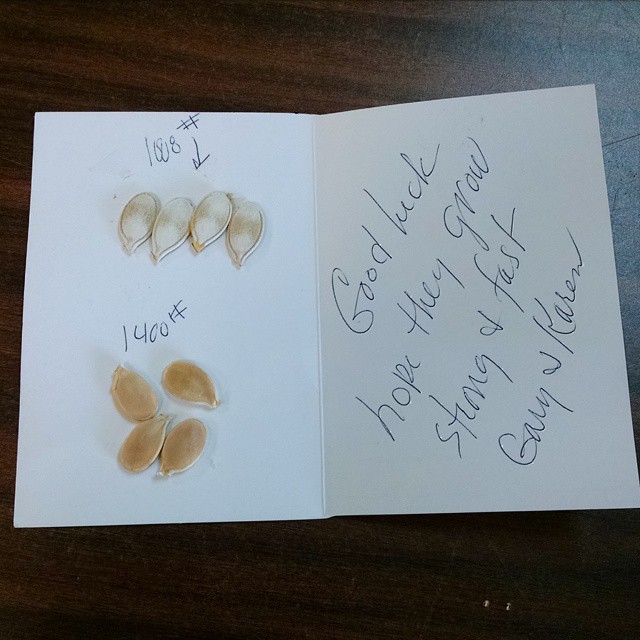 1808#
1400#
Good luck
hope they grow
strong & fast
Gary & Karen